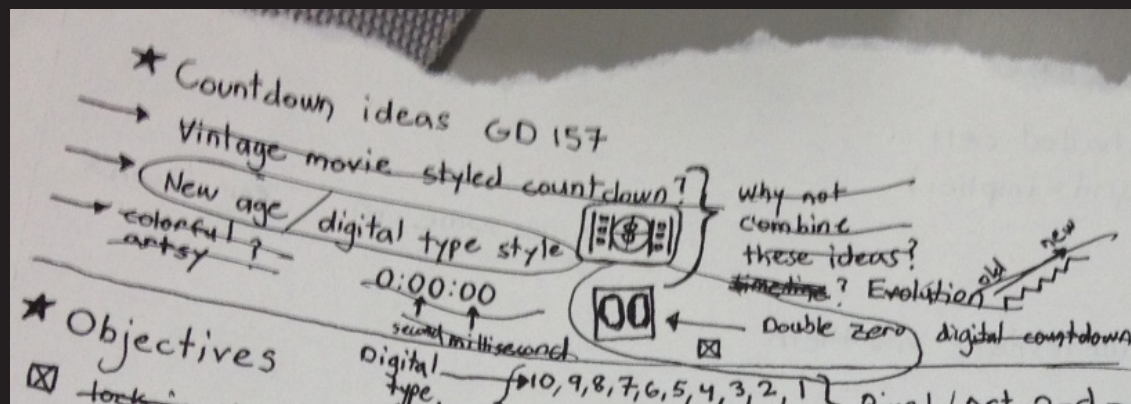 ★ Countdown ideas GD 157
→ Vintage movie styled countdown?
→ New age / digital type style
→ colorful ?
artsy
why not
combine
these ideas?
? Evolution
old new
0:00:00
second millisecond
00 ← Double zero
digital countdown
★ Objectives
Digital
type
10, 9, 8, 7, 6, 5, 4, 3, 2, 1